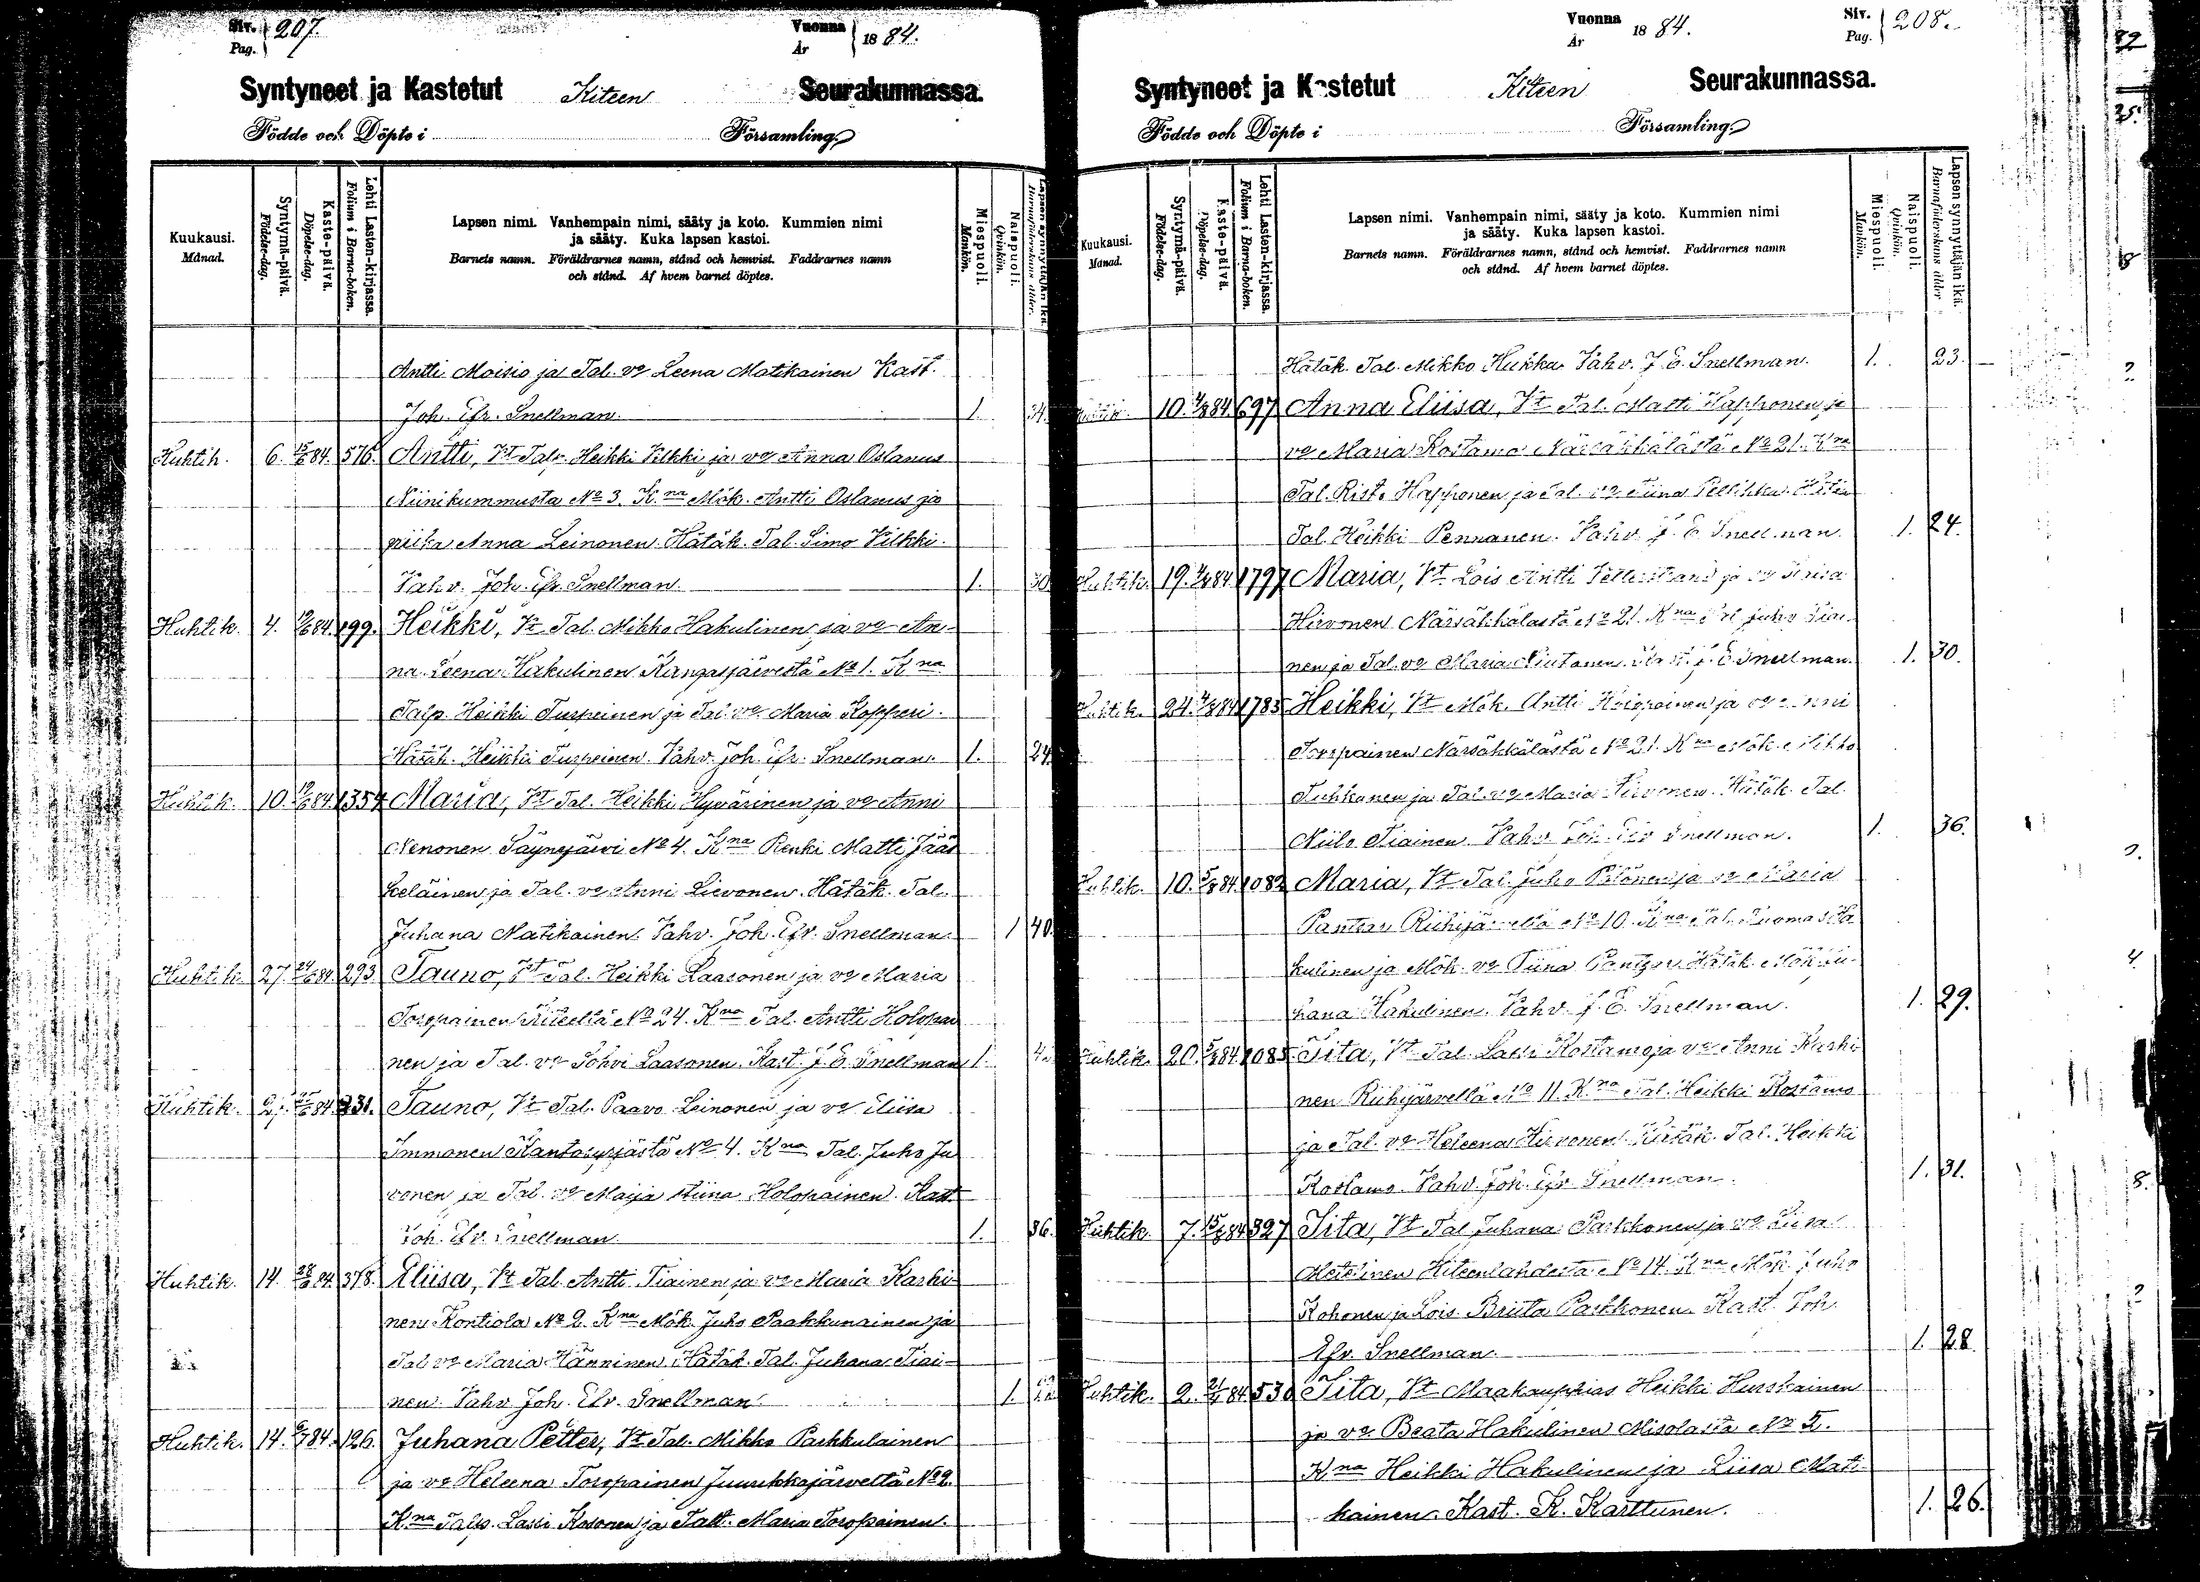 Siv. Pag. 207.
Vuonna År 1884.
Syntyneet ja Kastetut Kiteen Seurakunnassa.
Födde och Döpte i Församling
Kuukausi. Månad.
Syntymä-päivä. Födelse-dag.
Kaste-päivä. Döpelse-dag.
Lehti Lasten-kirjassa. Folium i Barna-boken.
Lapsen nimi. Vanhempain nimi, sääty ja koto. Kummien nimi
ja sääty. Kuka lapsen kastoi.
Barnets namn. Föräldrarnes namn, stånd och hemvist. Faddrarnes namn
och stånd. Af hvem barnet döptes.
Miespuoli. Mankön.
Naispuoli. Qvinkön.
Lapsen synnyttäjän ikä. Barnaföderskans ålder.
Antti Moisio ja Tal. vo Leena Matikainen Kast.
Joh. Efr. Snellman. 1. 34.
Huhtik. 6. 84. 576. Antti, Vt Talv. Heikki Vilkki ja vo Anna Oslanus
Niinikummusta No 3. K.na Mök. Antti Oslanus ja
piika Anna Leinonen. Hätäk. Tal. Simo Vilkki.
Vahv. Joh. Efr. Snellman. 1. 30
Huhtik. 4. 84. 199. Heikki, Vt Tal. Mikko Hakulinen ja vo An-
na Leena Hakulinen Kangasjärvestä No 1. K.na
Talp. Heikki Turpeinen ja Tal. vo Maria Kopperi.
Hätäk. Heikki Turpeinen. Vahv. Joh. Efr. Snellman. 1. 24.
Huhtik. 10. 84 1354 Maria, Vt Tal. Heikki Hyvärinen ja vo Anni
Nenonen Säynejärvi No 4. K.na Renki Matti Jääs
keläinen ja Tal. vo Anni Lievonen. Hätäk. Tal.
Juhana Matikainen. Vahv. Joh. Efr. Snellman. 1 40.
Huhtik. 27. 84. 293 Tauno, Vt Tal. Heikki Laasonen ja vo Maria
Toropainen Kiteeltä No 24. K.na Tal. Antti Holopai
nen ja Tal. vo Sohvi Laasonen. Kast. J. E. Snellman 1.
Huhtik. 84 231. Tauno, Vt Tal. Paavo Leinonen ja vo Eliisa
Immonen No 4. K.na Tal. Juho Ju
vonen ja Tal. vo Maija Stiina Holopainen. Kast
Joh. Efr. Snellman. 1. 36.
Huhtik. 14. 84. 378. Eliisa, Vt Tal. Antti Tiainen ja vo Maria Karhi-
nen Kontiola No 2. K.na Mök. Juho Paakkunainen ja
Tal vo Maria Hänninen. Hätäk. Tal. Juhana Tiai-
nen. Vahv. Joh. Efr. Snellman. 1.
Huhtik. 14. 84. 126. Juhana Petter, Vt Tal. Mikko Parkkulainen
ja vo Heleena Toropainen Juurikkajärveltä No 2.
K.na Talp. Lassi Kosonen ja Talt. Maria Toropainen.
Vuonna År 1884.
Siv. Pag. 208.
Syntyneet ja Kastetut Kiteen Seurakunnassa.
Födde och Döpte i Församling
Kuukausi. Månad.
Syntymä-päivä. Födelse-dag.
Kaste-päivä. Döpelse-dag.
Lehti Lasten-kirjassa. Folium i Barna-boken.
Lapsen nimi. Vanhempain nimi, sääty ja koto. Kummien nimi
ja sääty. Kuka lapsen kastoi.
Barnets namn. Föräldrarnes namn, stånd och hemvist. Faddrarnes namn
och stånd. Af hvem barnet döptes.
Miespuoli. Mankön.
Naispuoli. Qvinkön.
Lapsen synnyttäjän ikä. Barnaföderskans ålder
Hätäk. Tal. Mikko Kukka Vahv. J. E. Snellman. 1. 23.
10. 84 697 Anna Eliisa, Vt Tal. Matti Happonen ja
vo Maria Kostamo Närsäkkälästä No 21. K.na
Tal. Risto Happonen ja Tal. vo Tiina Pellikka. Hätäk
Tal. Heikki Pennanen. Vahv. J. E. Snellman. 1. 24.
Huhtik. 19. 84 1797 Maria, Vt Lois Antti ja vo
Hirvonen Närsäkkälästä No 21. K.na Juho Tiai-
nen ja Tal. vo Maria J. E. Snellman. 1. 30.
Huhtik. 24. 84 1785 Heikki, Vt Mök. Antti ja vo Anni
Toropainen Närsäkkälästä No 21. K.na Mök. Mikko
Tuhkanen ja Tal. vo Maria Hirvonen. Hätäk. Tal.
Niilo Tiainen. Vahv. Joh. Efr Snellman. 1. 36.
Huhtik. 10. 84 1082 Maria, Vt Tal. Juho Pölönen ja vo Maria
Pantsu No 10. K.na Tal. Tuomas Ha
kulinen ja Mök. vo Tiina Hätäk. Mök Ju-
hana Hakulinen. Vahv. J. E. Snellman. 1. 29.
Huhtik. 20. 84. 1085 Iita, Vt Tal. Lassi Kostamo ja vo Anni Karhi-
nen Riihijärveltä No 11. K.na Tal. Heikki Kostamo
ja Tal. vo Heleena Hirvonen. Hätäk. Tal. Heikki
Kostamo. Vahv. Joh. Efr Snellman. 1. 31.
Huhtik. 7. 84 327 Iita, Vt Tal Juhana Parkkonen ja vo Liisa
Kiteenlahdesta No 14. K.na Mök Juho
Kohonen ja Lois Briita Parkkonen. Kast. Joh.
Efr. Snellman. 1. 28.
Huhtik. 2. 84 530 Iita, Vt Maakauppias Heikki Hurskainen
ja vo Beata Hakulinen Misolasta No 5.
K.na Heikki Hakulinen ja Liisa Mati-
kainen. Kast. K. Karttunen. 1. 26.